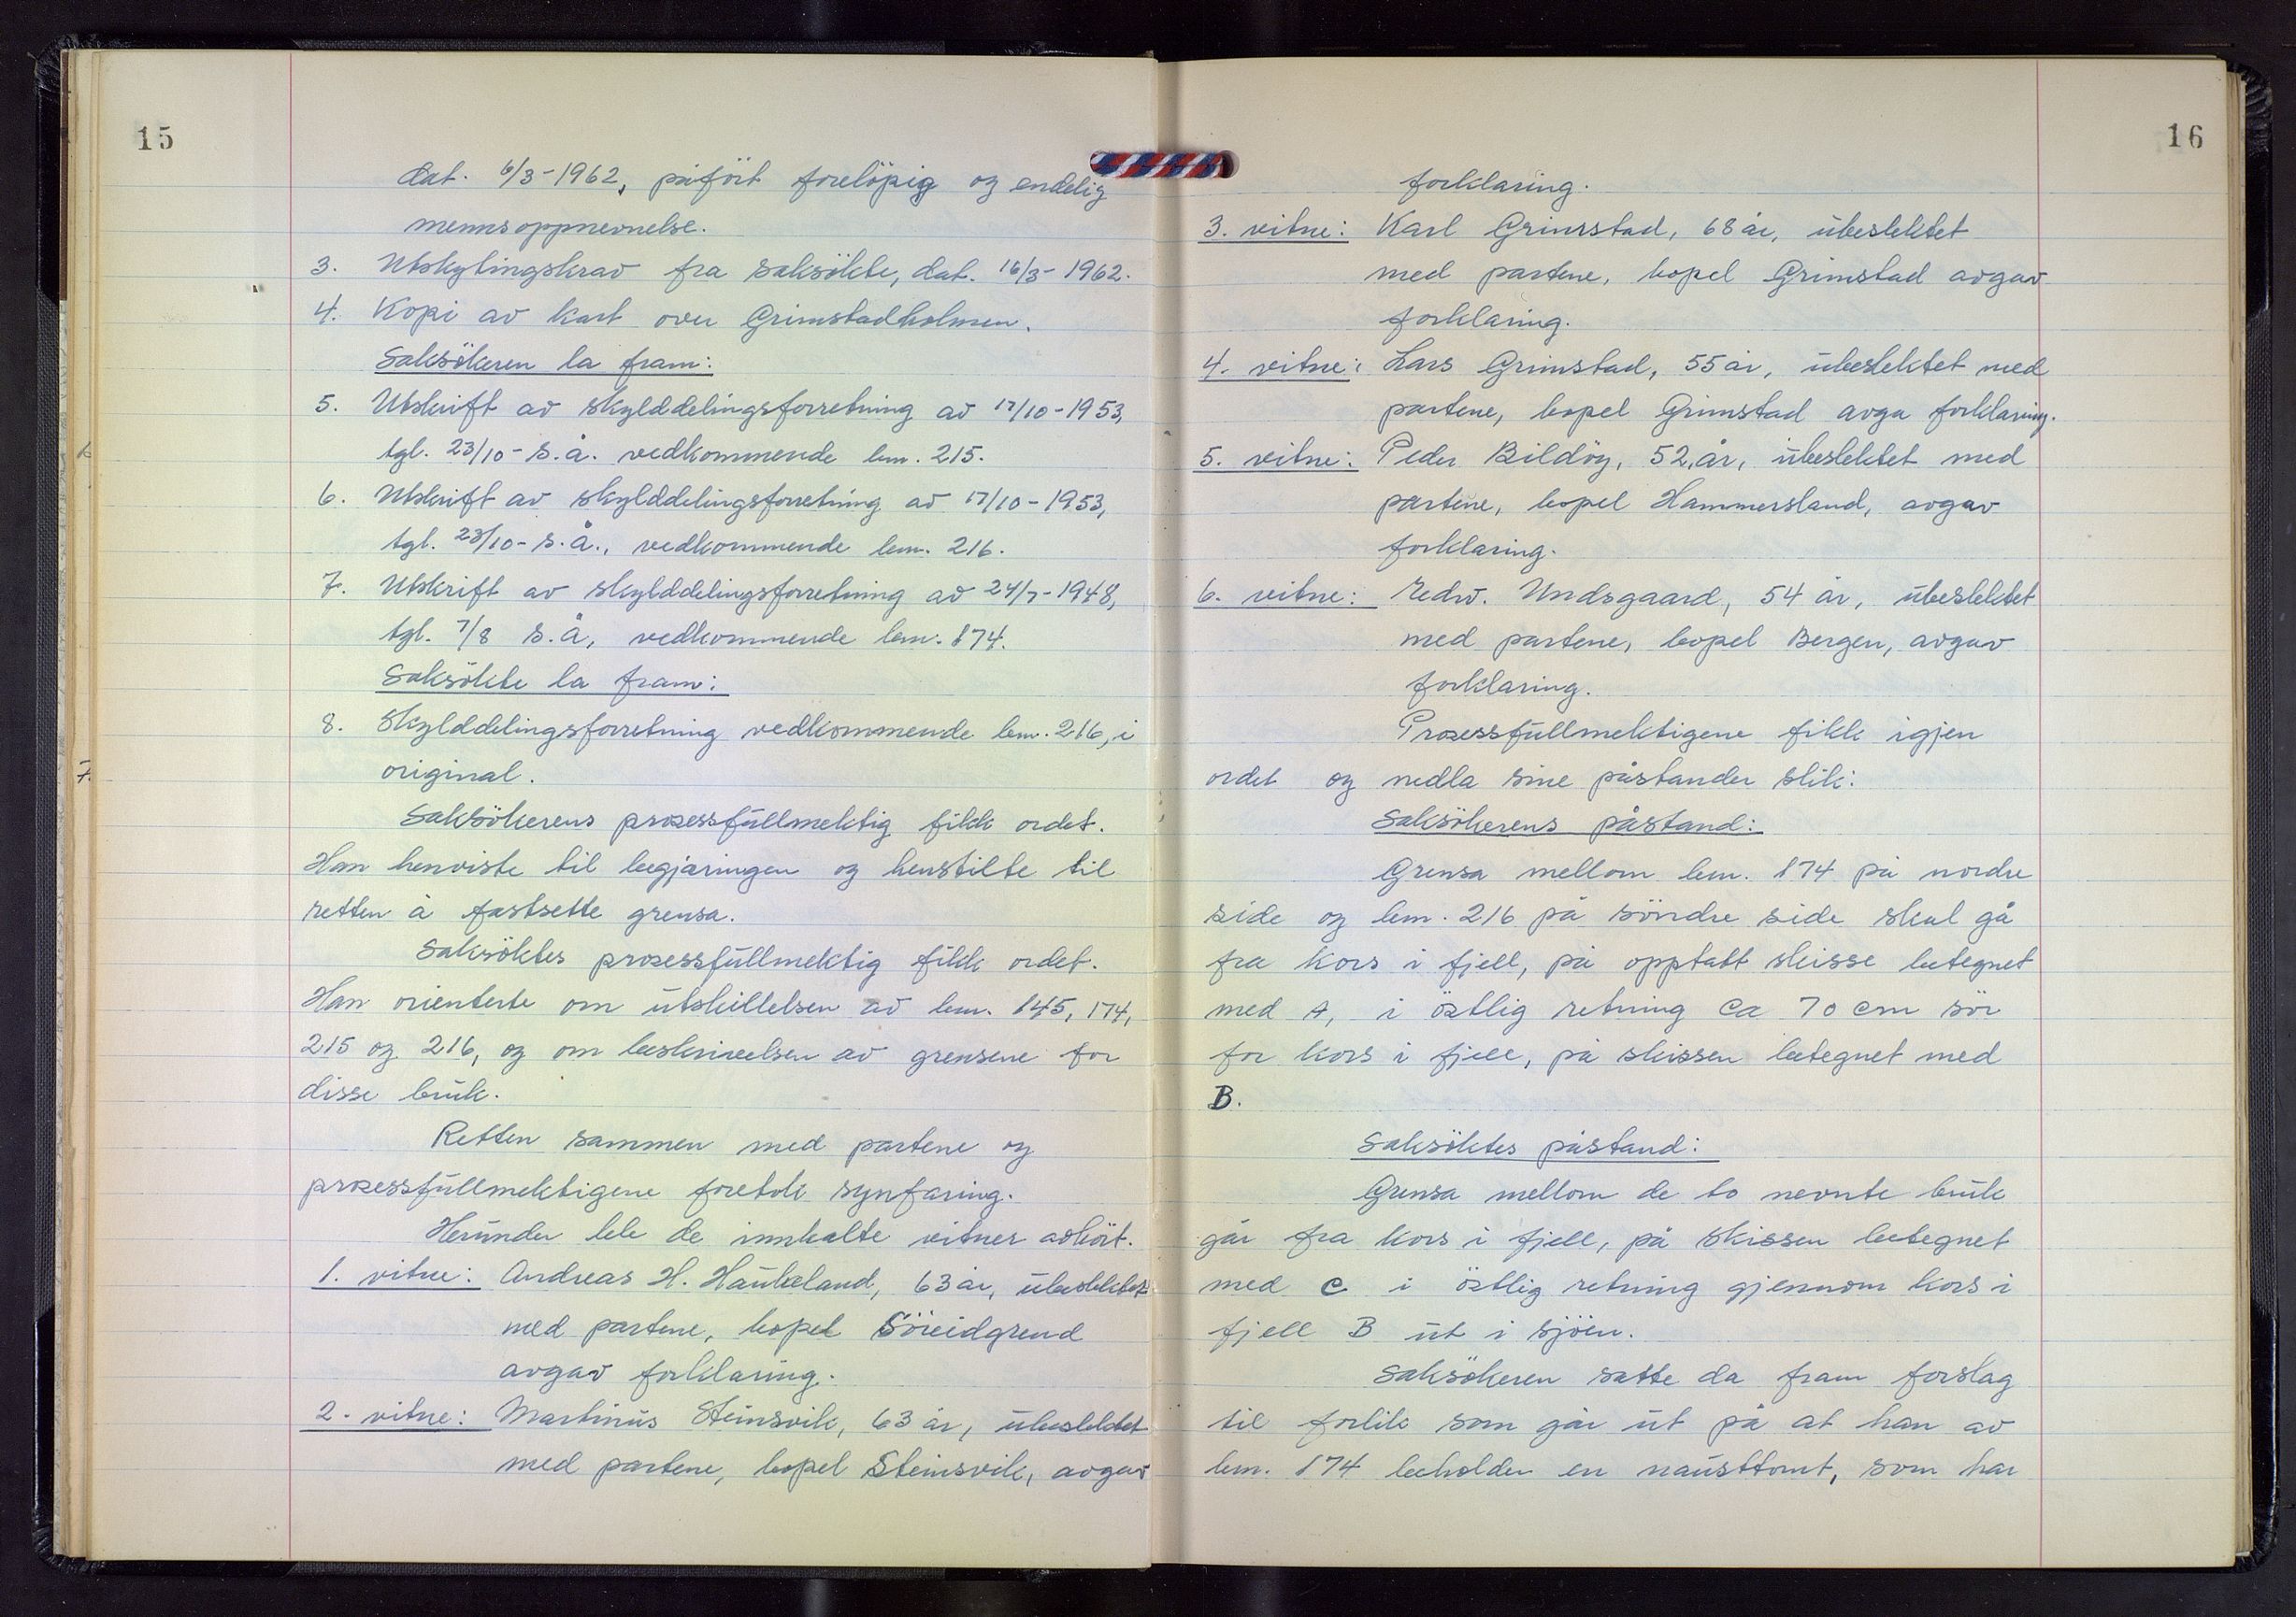 15
dat. 6/3-1962, påført foreløpig og endelig
mennsoppnevnelse.
3. Utskytingskrav fra saksøkte, dat. 16/3-1962.
4. Kopi av kart over Grimstadholmen.
Saksøkeren la fram:
5. Utskrift av skylddelingsforretning av 17/10-1953,
tgl. 23/10- s.å. vedkommende bnr. 215.
6. Utskrift av skylddelingsforretning av 17/10-1953,
tgl. 23/10- s.å., vedkommende bnr. 216.
7. Utskrift av skylddelingsforretning av 24/7-1948,
tgl. 7/8 s.å, vedkommende bnr. 174.
Saksøkte la fram:
8. Skylddelingsforretning vedkommende bnr. 216, i
original.
Saksøkerens prosessfullmektig fikk ordet.
Han henviste til begjæringen og henstilte til
retten å fastsette grensa.
Saksøktes prosessfullmektig fikk ordet.
Han orienterte om utskillelsen av bnr. 145, 174,
215 og 216, og om beskrivelsen av grensene for
disse bruk.
Retten sammen med partene og
prosessfullmektigene foretok synfaring.
Herunder ble de innkalte vitner avhørt.
1. vitne: Andreas H. Haukeland, 63 år, ubeslektet
med partene, bopel Søreidgrend
avgav forklaring.
2. vitne: Martinus Steinsvik, 63 år, ubeslektet
med partene, bopel Steinsvik, avgav
16
forklaring.
3. vitne: Karl Grimstad, 68 år, ubeslektet
med partene, bopel Grimstad avgav
forklaring.
4. vitne: Lars Grimstad, 55 år, ubeslektet med
partene, bopel Grimstad avga forklaring.
5. vitne: Peder Bildøy, 52 år, ubeslektet med
partene, bopel Hammersland, avgav
forklaring.
6. vitne: Redv. Undsgaard, 54 år, ubeslektet
med partene, bopel Bergen, avgav
forklaring.
Prosessfullmektigene fikk igjen
ordet og nedla sine påstander slik:
Saksøkerens påstand:
Grensa mellom bnr. 174 på nordre
side og bnr. 216 på søndre side skal gå
fra kors i fjell, på opptatt skisse betegnet
med A, i østlig retning ca 70 cm sør
for kors i fjell, på skissen betegnet med
B.
Saksøktes påstand:
Grensa mellom de to nevnte bruk
går fra kors i fjell, på skissen betegnet
med C i østlig retning gjennom kors i
fjell B ut i sjøen.
Saksøkeren satte da fram forslag
til forlik som går ut på at han av
bnr. 174 beholder en nausttomt, som har